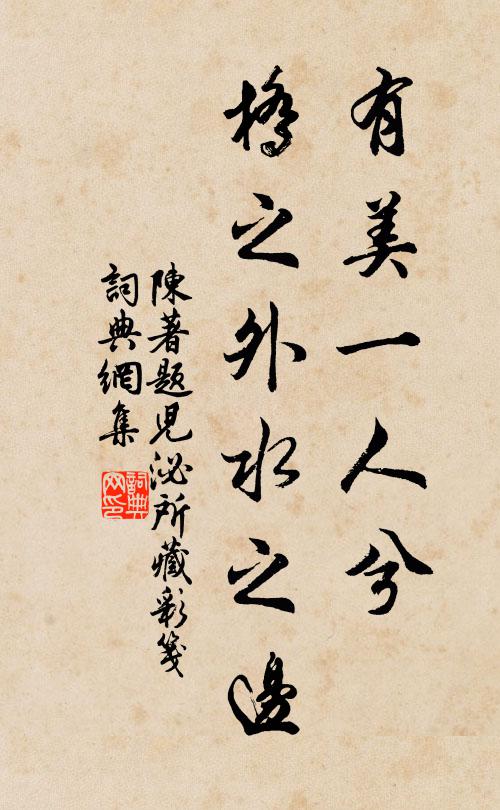 有美一人兮
橋之外水之邊
陳著題兒泌所藏彩箋
詞典網集
詞典網印